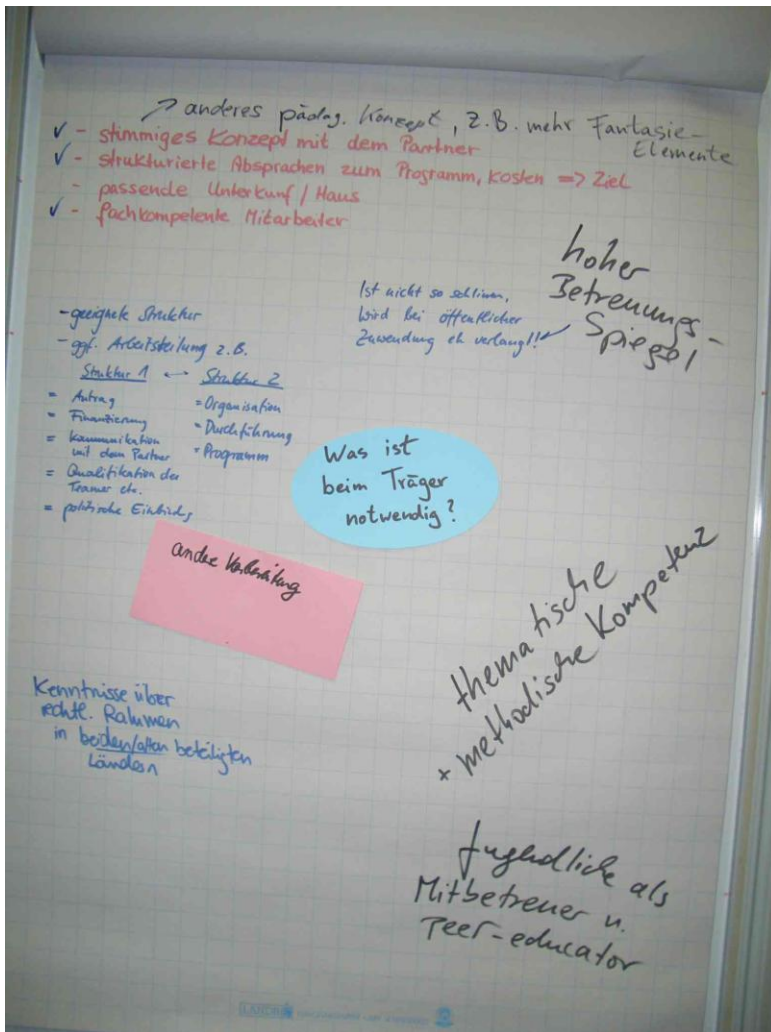 ↗ anderes pädag. Konzept, z.B. mehr Fantasie-
Elemente
✓ - stimmiges Konzept mit dem Partner
✓ - strukturierte Absprachen zum Programm, Kosten => Ziel
- passende Unterkunf / Haus
✓ - fachkompetente Mitarbeiter
hoher
Betreuungs-
Spiegel
Ist nicht so schlimm,
wird bei öffentlicher
Zuwendung eh verlangt!!
- geeignete Struktur
- ggf. Arbeitsteilung z.B.
Struktur 1 ↔ Struktur 2
= Antrag
= Finanzierung
= Kommunikation
mit dem Partner
= Qualifikation der
Teamer etc.
= politische Einbindg
= Organisation
= Durchführung
= Programm
Was ist
beim Träger
notwendig?
andere Vorbereitung
thematische
+ methodische Kompetenz
Kenntnisse über
rechtl. Rahmen
in beiden/allen beteiligten
Ländern
Jugendliche als
Mitbetreuer u.
Peer-educator
LANDRÉ